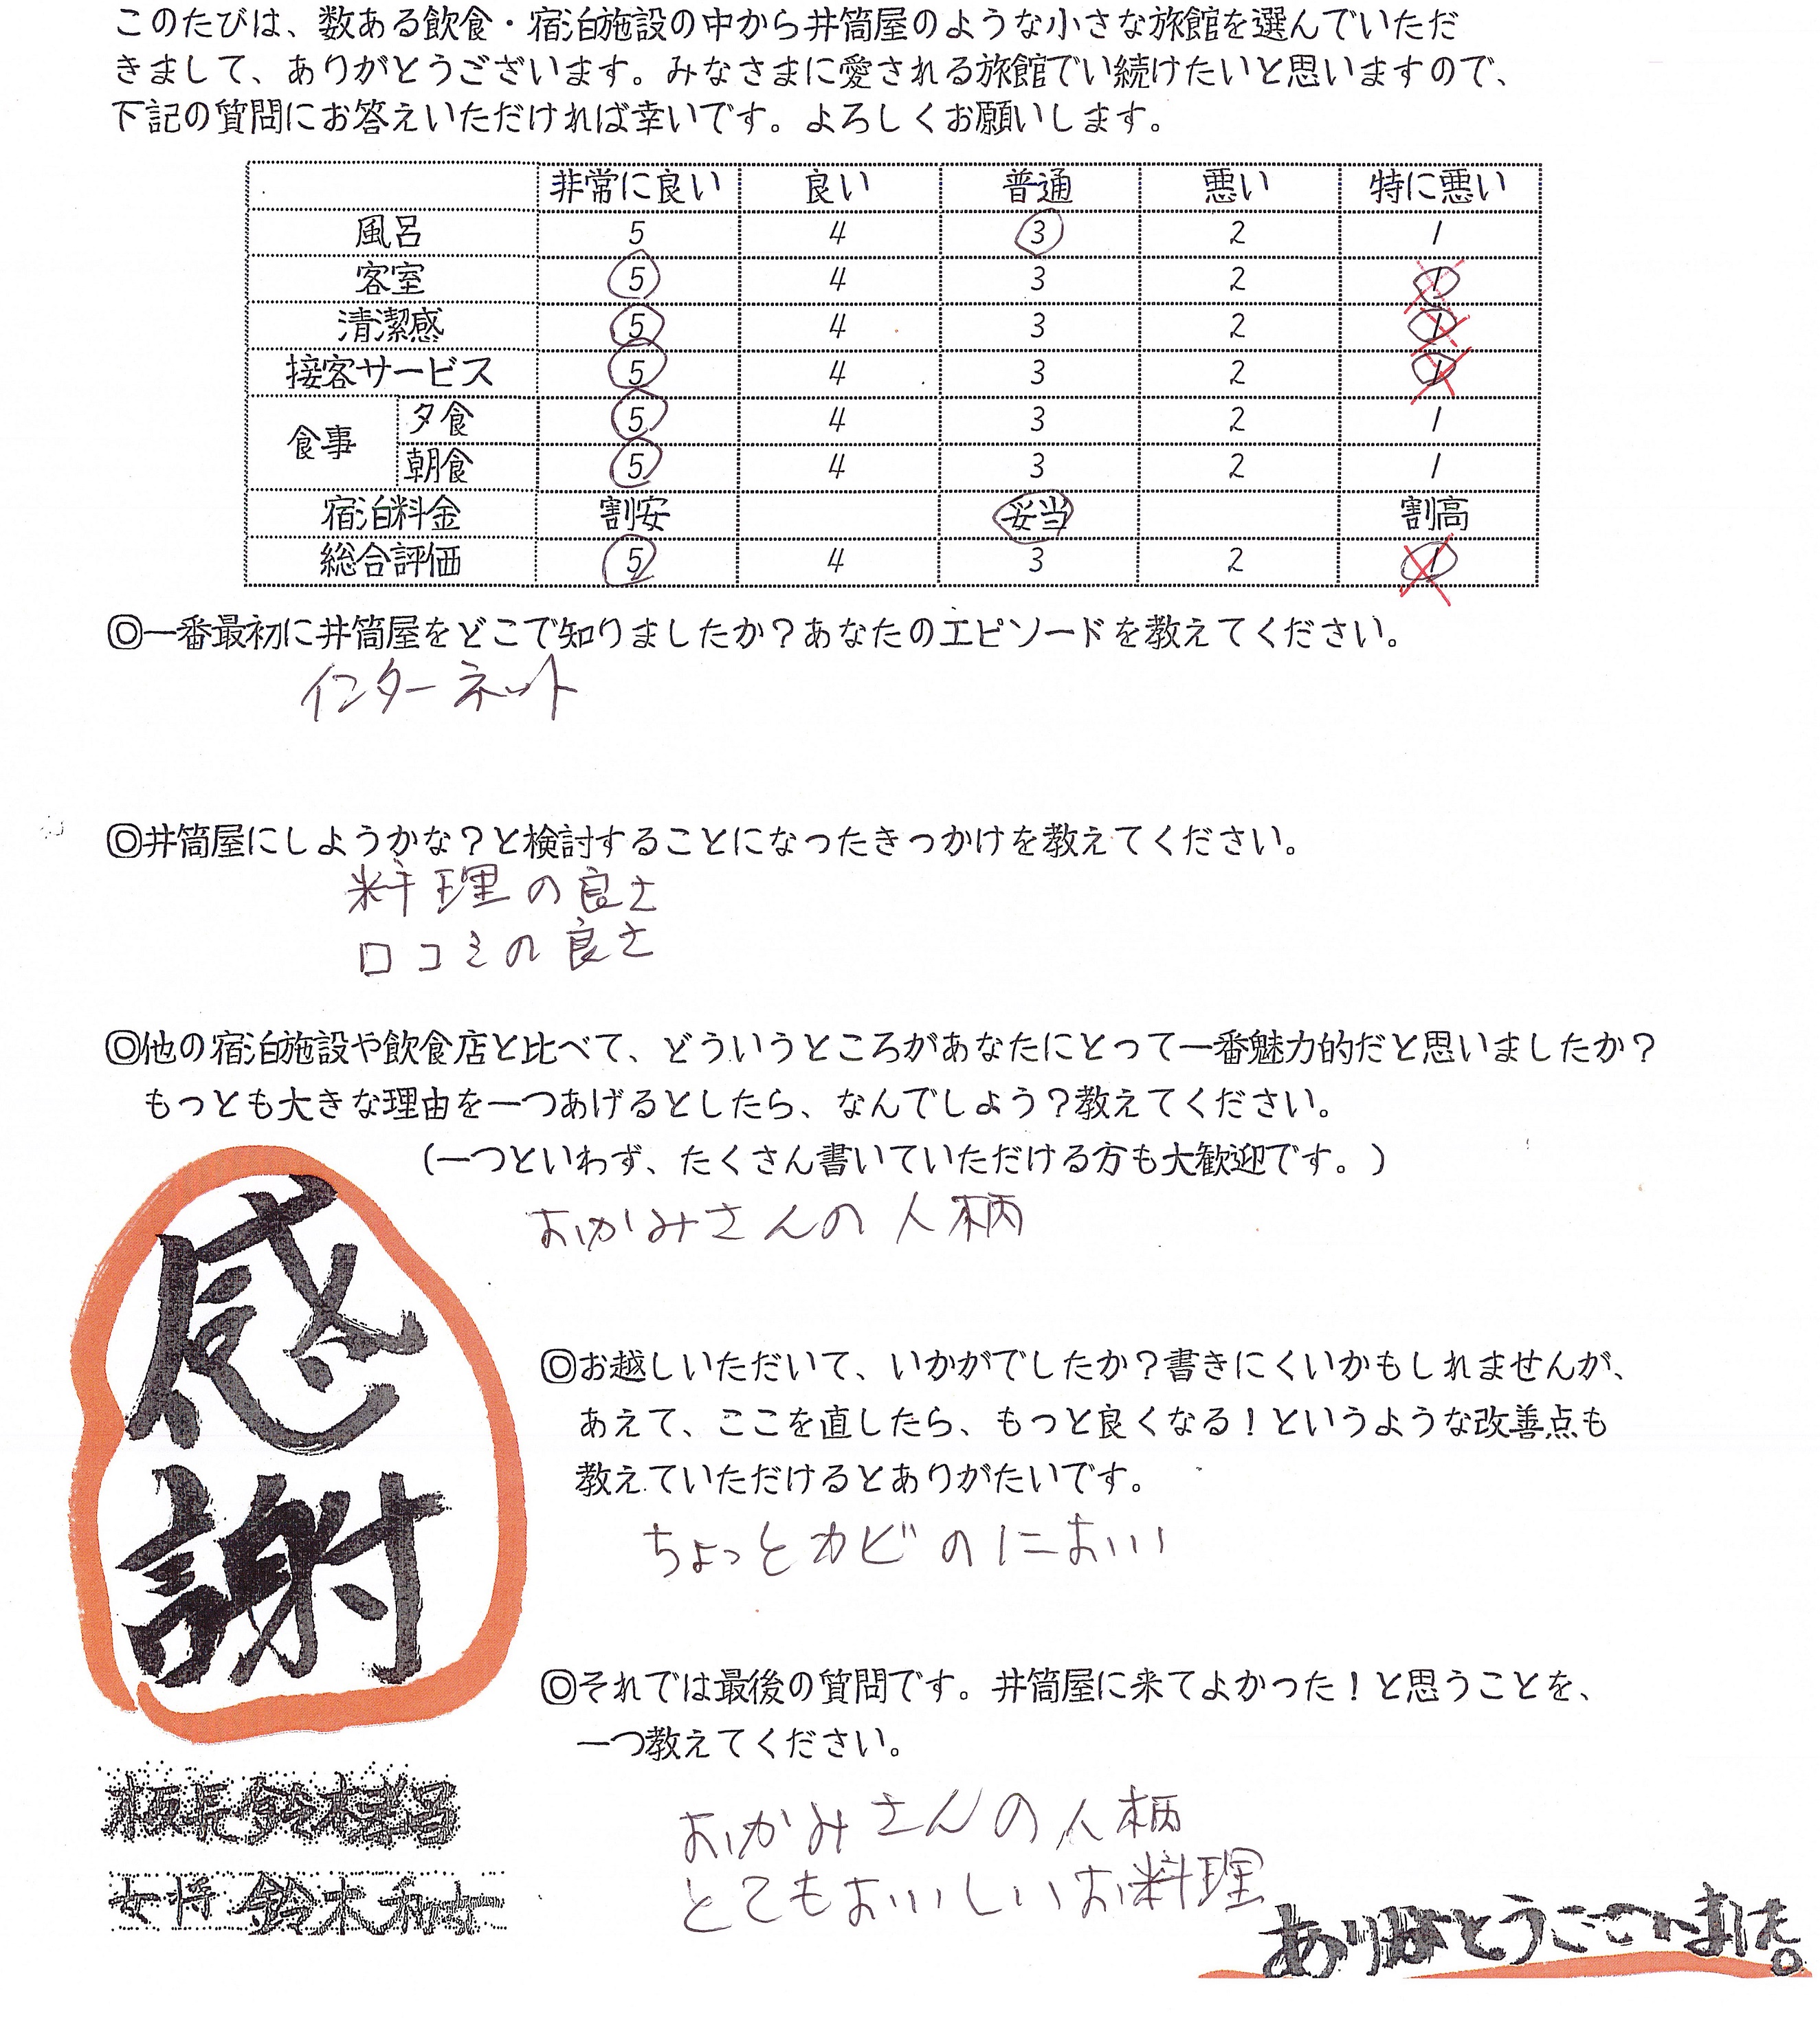 このたびは、数ある飲食・宿泊施設の中から井筒屋のような小さな旅館を選んでいただ
きまして、ありがとうございます。みなさまに愛される旅館でい続けたいと思いますので、
下記の質問にお答えいただければ幸いです。よろしくお願いします。
非常に良い 良い 普通 悪い 特に悪い
風呂 5 4 3 2 1
客室 5 4 3 2 1
清潔感 5 4 3 2 1
接客サービス 5 4 3 2 1
食事
夕食 5 4 3 2 1
朝食 5 4 3 2 1
宿泊料金 割安 妥当 割高
総合評価 5 4 3 2 1
◎一番最初に井筒屋をどこで知りましたか？あなたのエピソードを教えてください。
インターネット
◎井筒屋にしようかな？と検討することになったきっかけを教えてください。
料理の良さ
口コミの良さ
◎他の宿泊施設や飲食店と比べて、どういうところがあなたにとって一番魅力的だと思いましたか？
もっとも大きな理由を一つあげるとしたら、なんでしょう？教えてください。
（一つといわず、たくさん書いていただける方も大歓迎です。）
おかみさんの人柄
感
謝
◎お越しいただいて、いかがでしたか？書きにくいかもしれませんが、
あえて、ここを直したら、もっと良くなる！というような改善点も
教えていただけるとありがたいです。
ちょっとカビのにおい
◎それでは最後の質問です。井筒屋に来てよかった！と思うことを、
一つ教えてください。
おかみさんの人柄
とてもおいしいお料理
板長 鈴木
女将 鈴木
ありがとうございました。